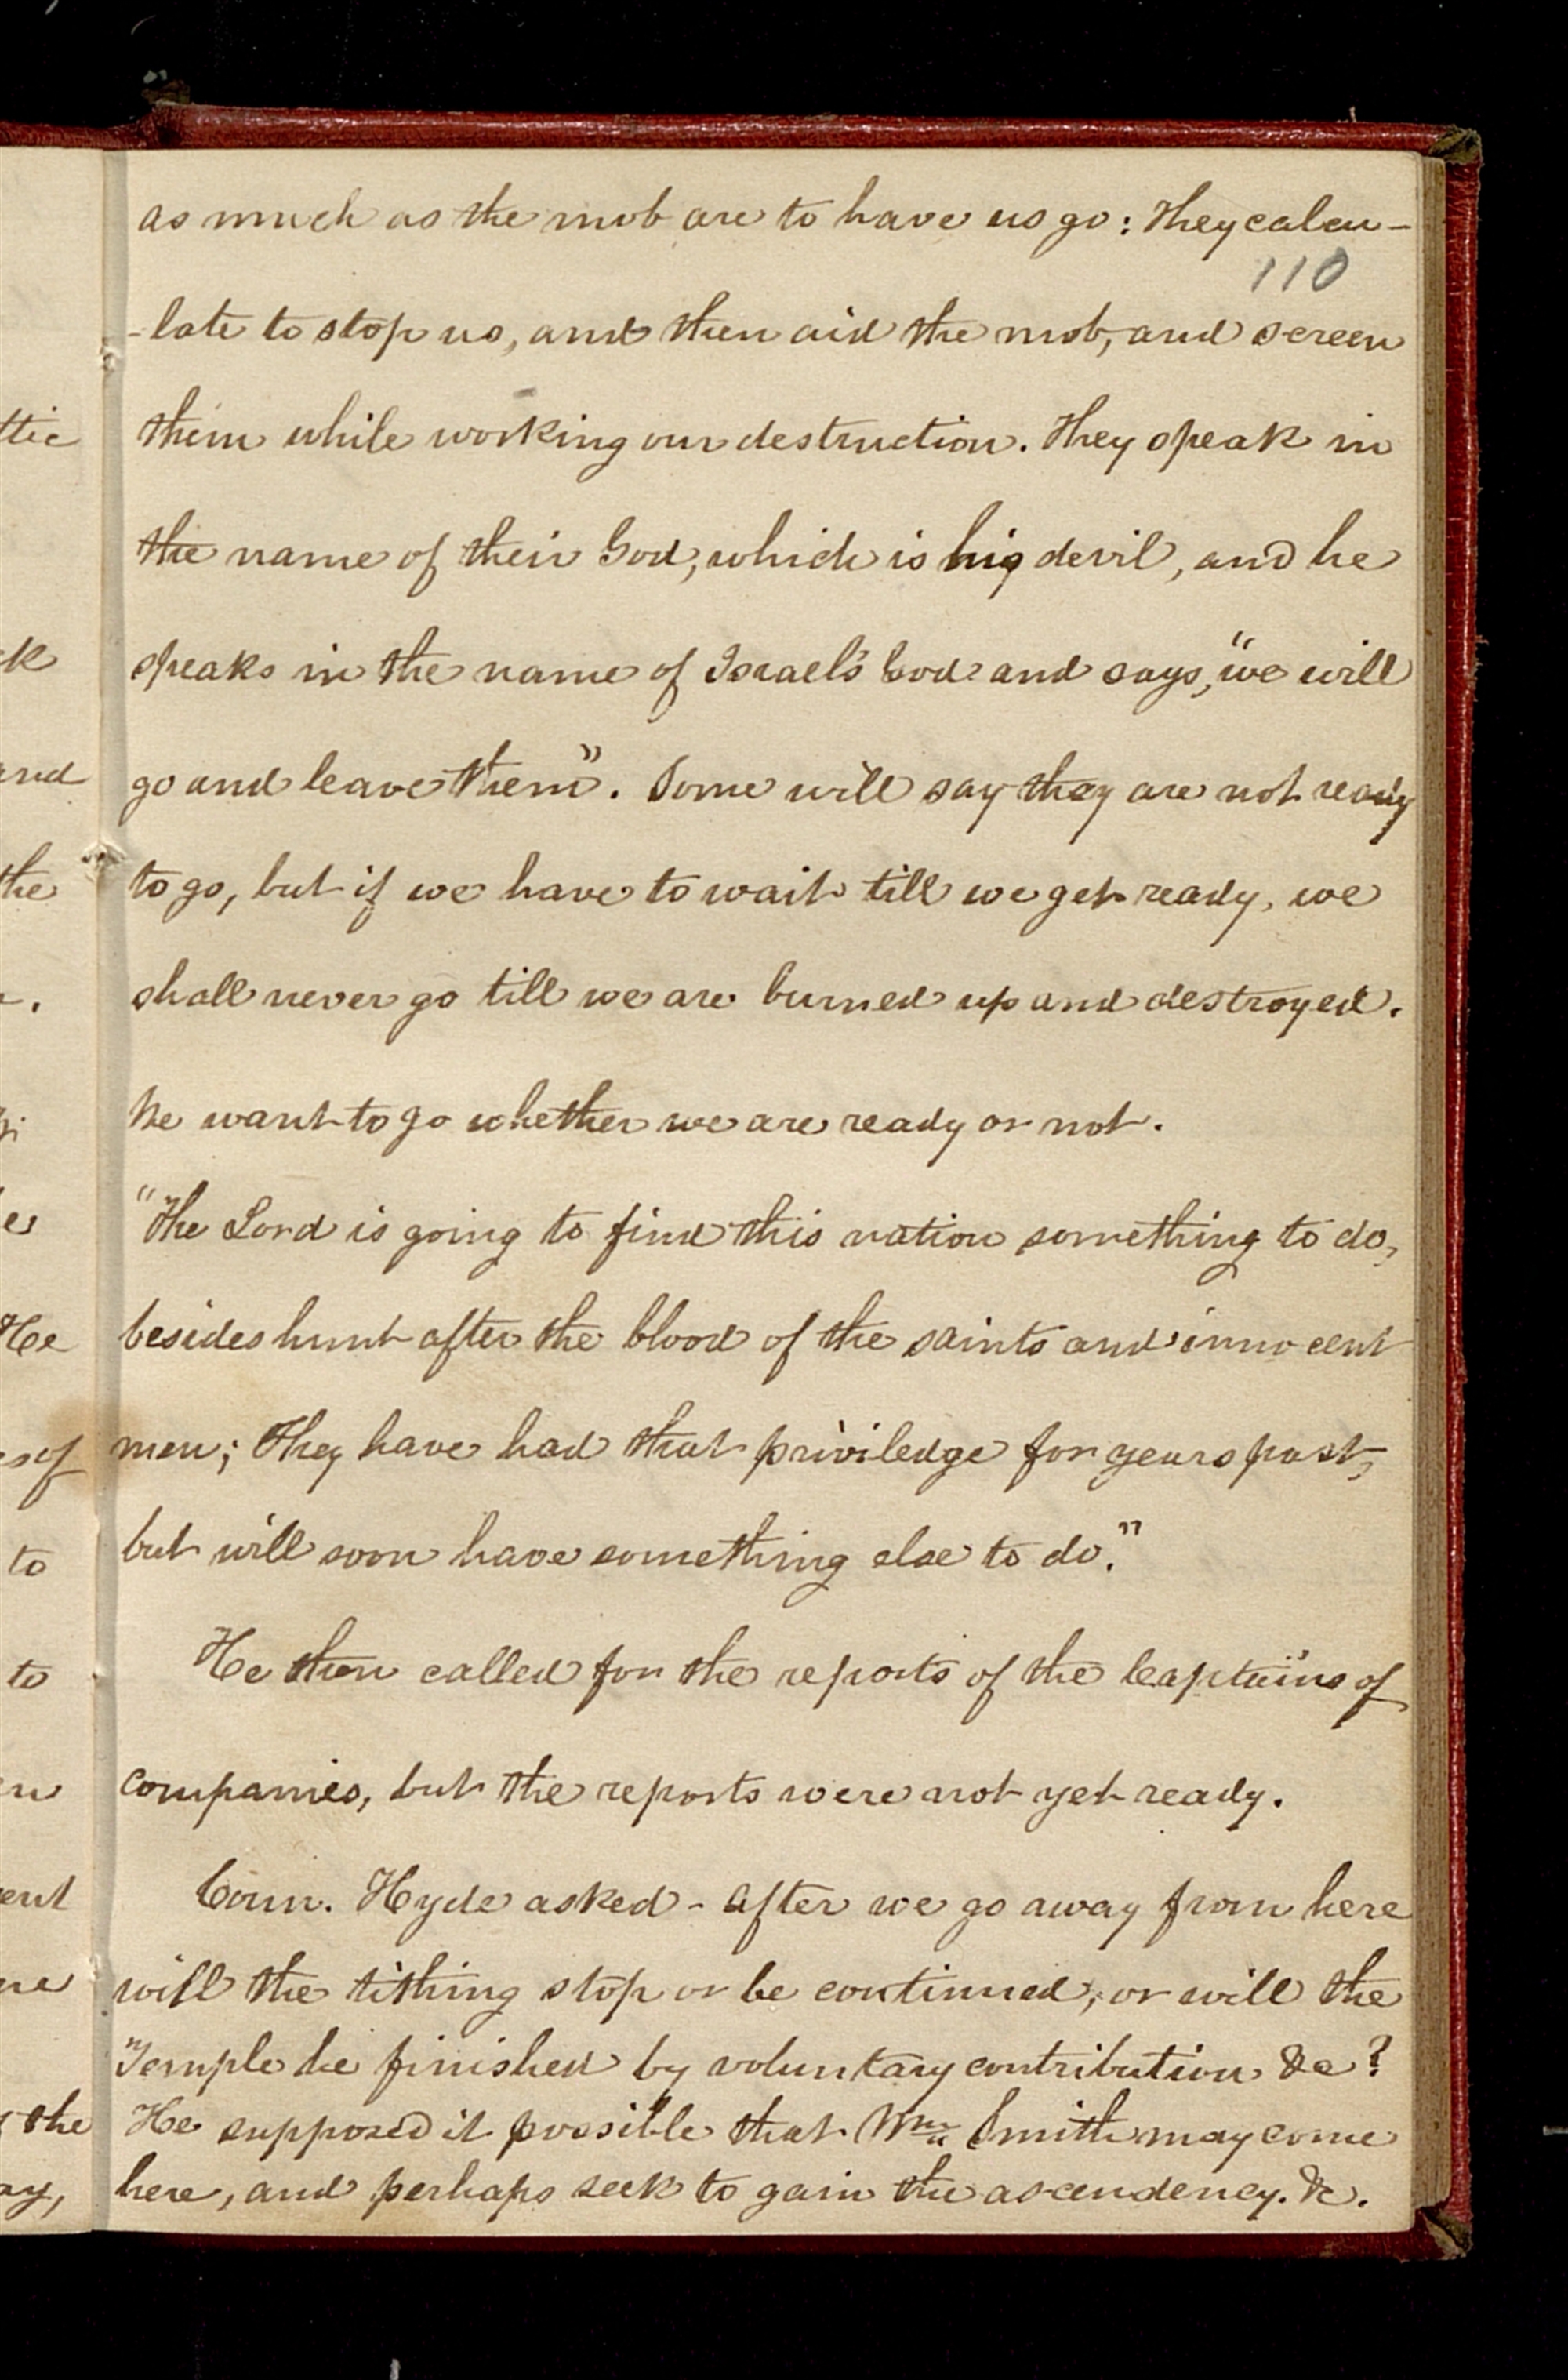 as much as the mob are to have us go: They calcu-
110
-late to stop us, and then aid the mob, and screen
them while working our destruction. They speak in
the name of their God, which is his devil, and he
speaks in the name of Israel's God and says, "we will
go and leave them". Some will say they are not ready
to go, but if we have to wait till we get ready, we
shall never go till we are burned up and destroyed.
He want to go whether we are ready or not.
"The Lord is going to find this nation something to do,
besides hunt after the blood of the saints and innocent
men; They have had that priviledge for years past,
but will soon have something else to do."
He then called for the reports of the Captains of
companies, but the reports were not yet ready.
Coun. Hyde asked - After we go away from here
will the tithing stop or be continued, or will the
Temple be finished by voluntary contribution &c?
He supposed it possible that Wm Smith may come
here, and perhaps seek to gain the ascendency. &c.